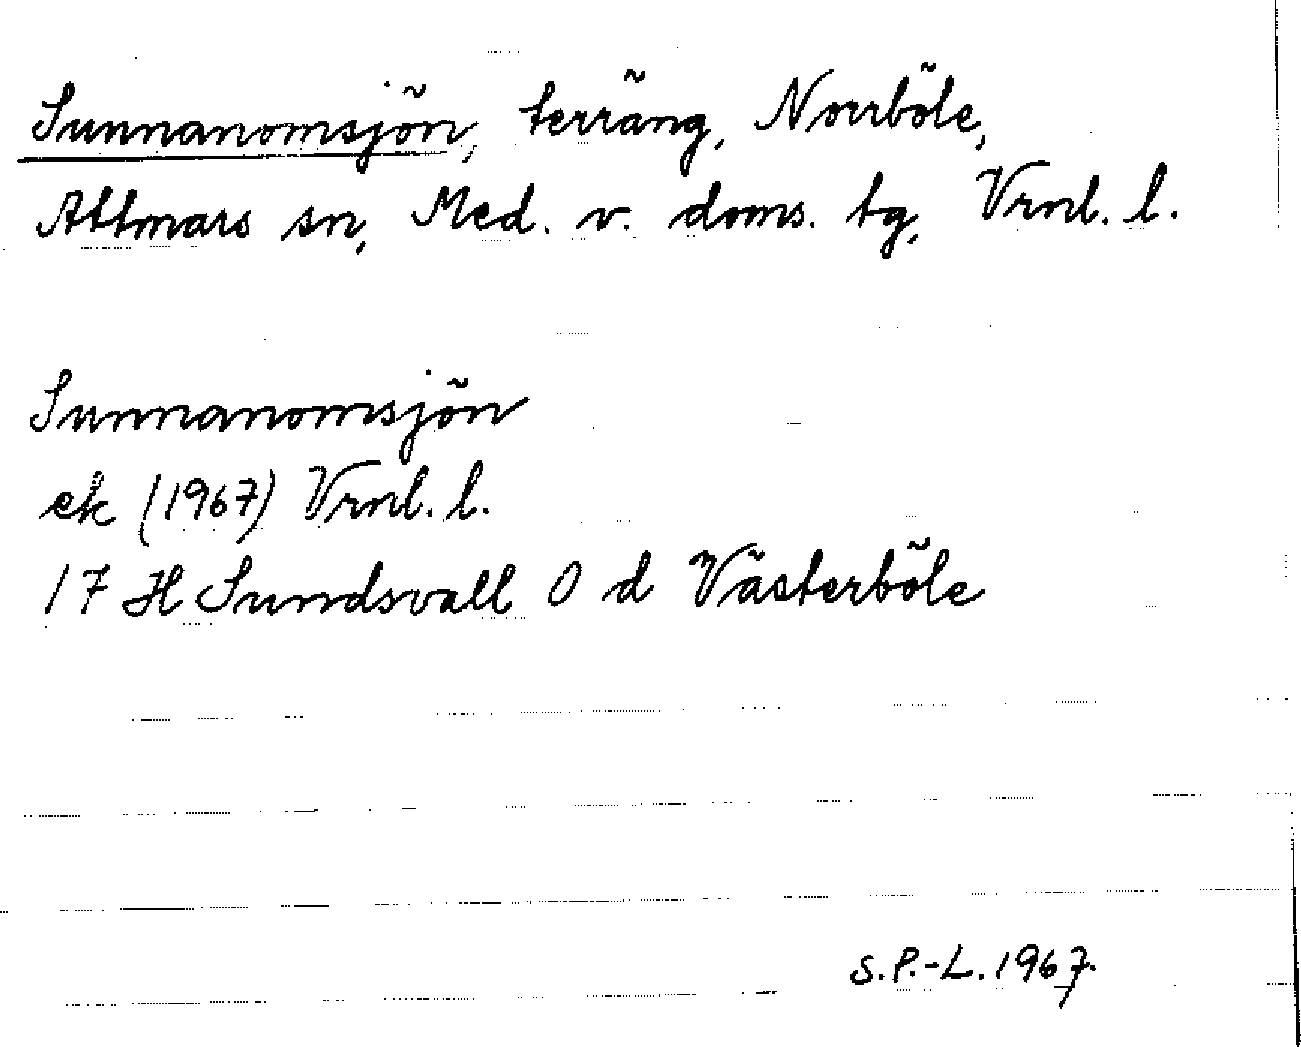 Sunnanomsjön, terräng, Norrböle,
Attmars sn, Med. v. doms. tg, Vrnl. l.
Sunnanomsjön
ek (1967) Vrnl. l.
17 H Sundsvall O d Västerböle
S.P.-L. 1967.